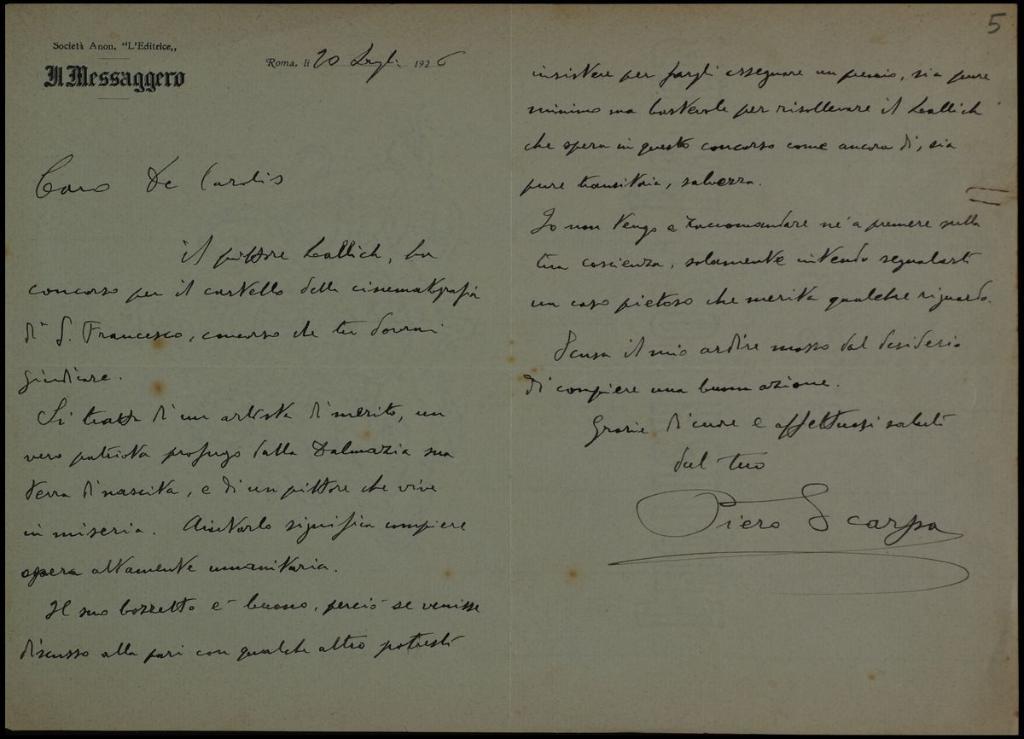 Società Anon. "L'Editrice„
Il Messaggero
Roma, li 20 Luglio 1926
Caro De Carolis
il pittore Lallich, ha
concorso per il cartello della cinematografia
di S. Francesco, concorso che tu dovrai
giudicare.
Si tratta di un artista di merito, un
vero patriota profugo dalla Dalmazia sua
terra di nascita, e di un pittore che vive
in miseria. Aiutarlo significa compiere
opera altamente umanitaria.
Il suo bozzetto è buono, perciò se venisse
discusso alla pari con qualche altro potresti
5
insistere per fargli assegnare un premio, sia pure
minimo ma bastevole per risollevare il Lallich
che spera in questo concorso come ancora di, sia
pure transitoria, salvezza.
Io non vengo a raccomandare nè a premere sulla
tua coscienza, solamente intendo segnalarti
un caso pietoso che merita qualche riguardo.
Scusa il mio ardire mosso dal desiderio
di compiere una buona azione.
Grazie di cuore e affettuosi saluti
dal tuo
Piero Scarpa